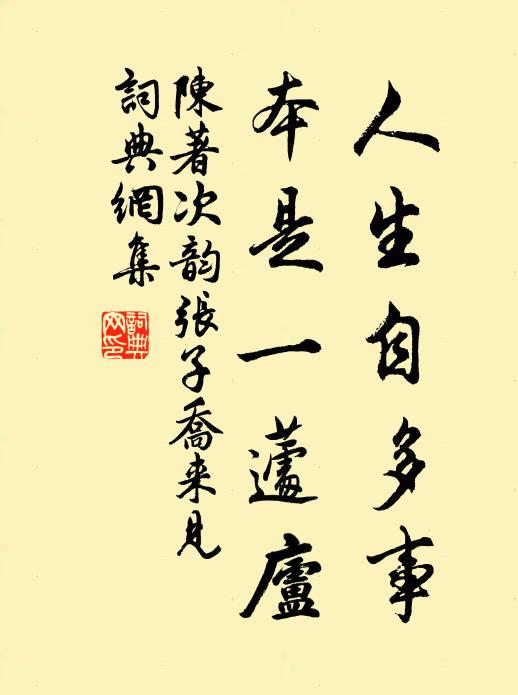 人生自多事
本是一蘧廬
陳著次韵張子喬来見
詞典網集
詞典網印